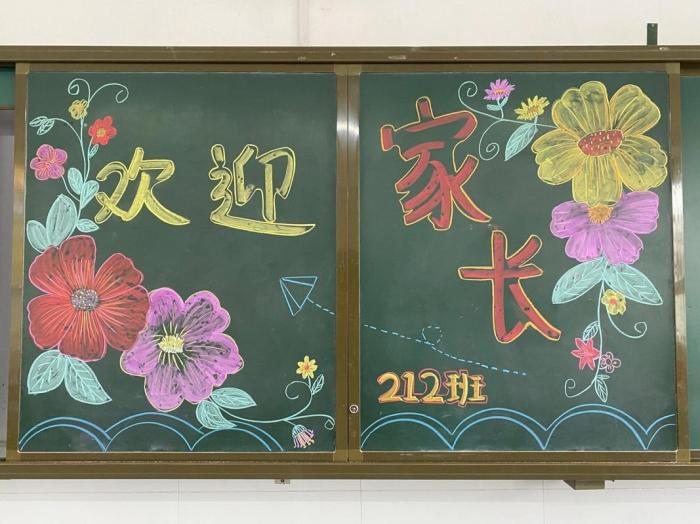 欢迎
家
长
212班